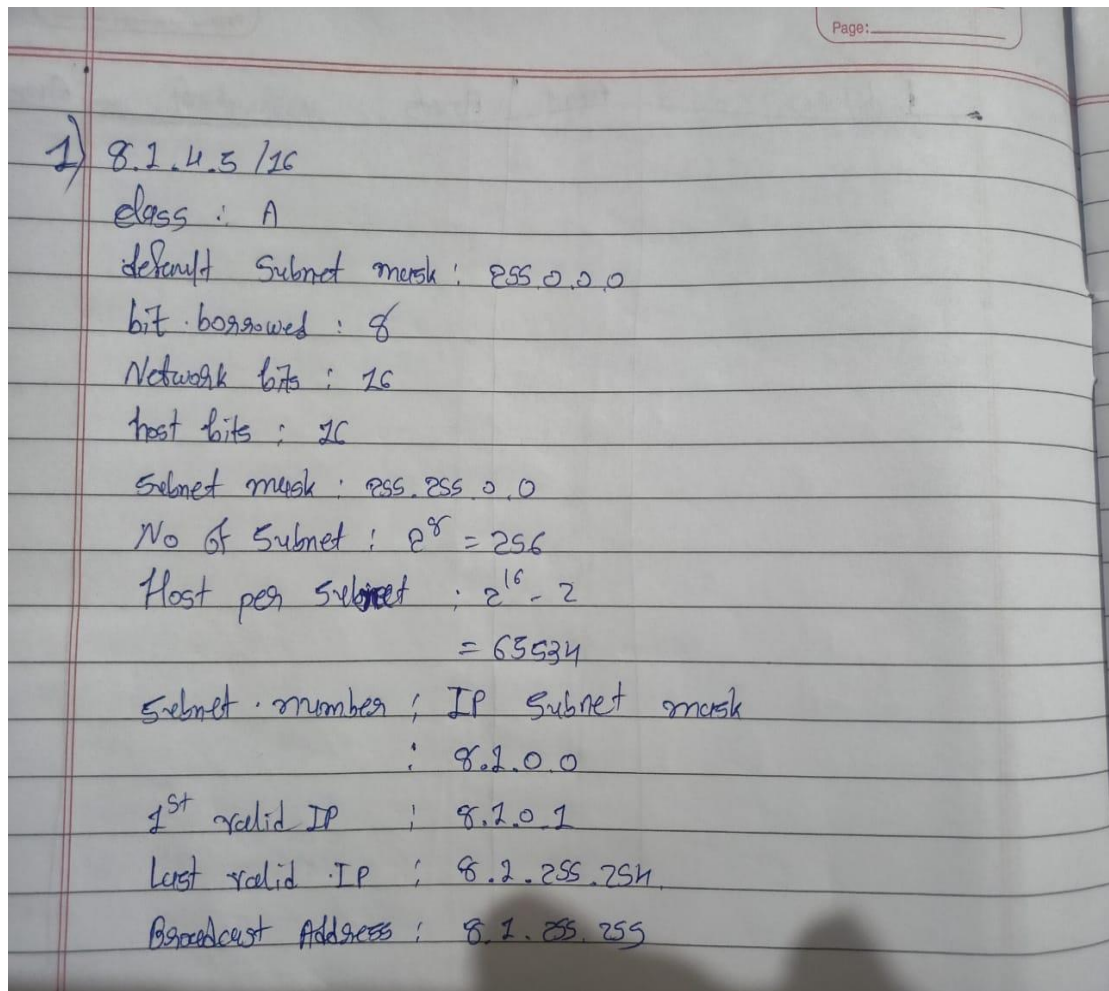 Page:
1) 8.1.4.5 /16
class : A
default Subnet mask : 255.0.0.0
bit borrowed : 8
Network bits : 16
host bits : 16
Subnet mask : 255.255.0.0
No of Subnet : 2^8 = 256
Host per Subnet : 2^16 - 2
= 65534
Subnet number : IP Subnet mask
: 8.1.0.0
1st valid IP : 8.1.0.1
Last valid IP : 8.1.255.254
Broadcast Address : 8.1.255.255